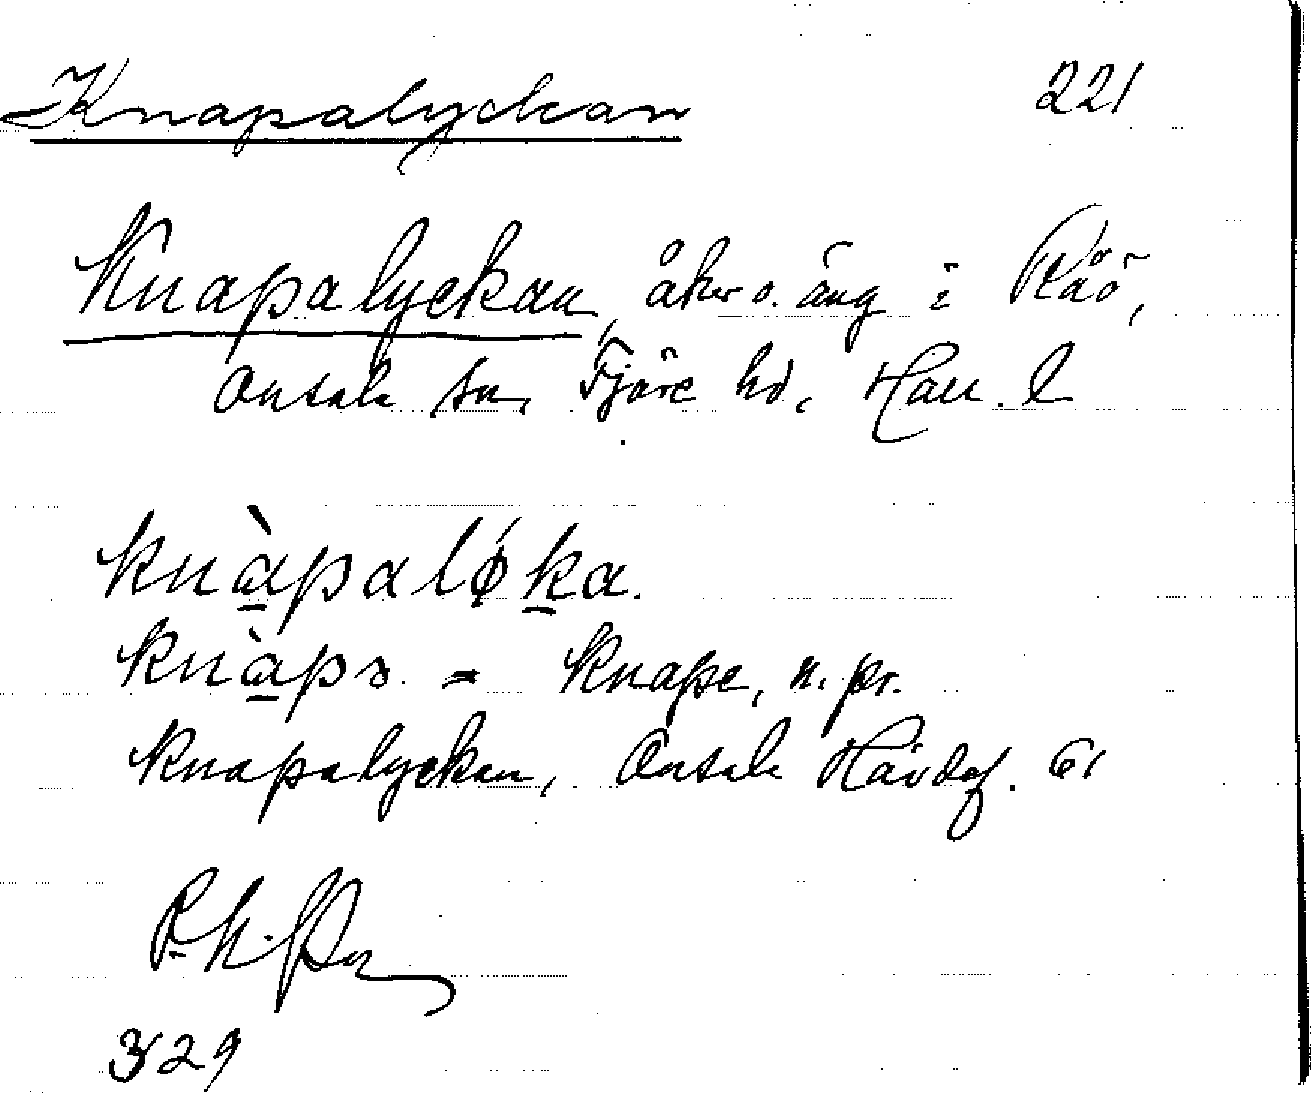 Knapalyckan 221
Knapalyckan, åker o. äng i Råö,
Onsala sn, Fjäre hd, Hall. l
knàpaløka.
knàpɜ = Knape, n. pr.
Knapalyckan, Onsala Hävdaf. 61
3/29